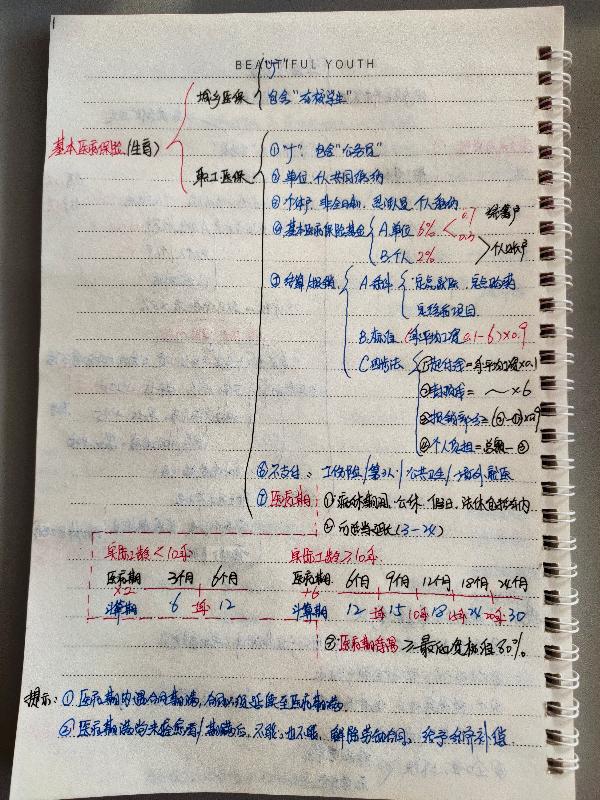 BEAUTIFUL YOUTH
城乡医保
包含"在校学生"
基本医疗保险(生育)
职工医保
① 包含"公务员"
② 单位、个人共同缴纳
③ 个体户、非全日制、灵活就业 个人缴纳
④ 基本医疗保险基金
A.单位 6% 0.7 统筹户
0.3
B.个人 2% 个人账户
⑤ 结算/报销
A.条件 定点医院、定点药店
定
B.标准 (年平均工资 0.1-6)×0.9
C.四步法 ①起付线=年平均工资×0.1
②封顶线= ～ ×6
③报销部分=(②-①)×0.9
④个人负担=总额-③
⑥ 不支付: 工伤保险/第三人/公共卫生/境外就医
⑦ 医疗期
①病休期间,公休、假日、法休包括在内
②可适当延长(3-24)
实际工数<10年
医疗期 3个月 6个月
×2
计算期 6 5年 12
实际工数≥10年
医疗期 6个月 9个月 12个月 18个月 24个月
+6
计算期 12 5年 15 10年 18 15年 24 20年 30
③医疗期待遇 ≥最低工资标准80%
提示: ① 医疗期内遇合同期满,合同必须延续至医疗期满
② 医疗期满尚未痊愈者/期满后,不能,也不能,解除劳动合同,给予经济补偿